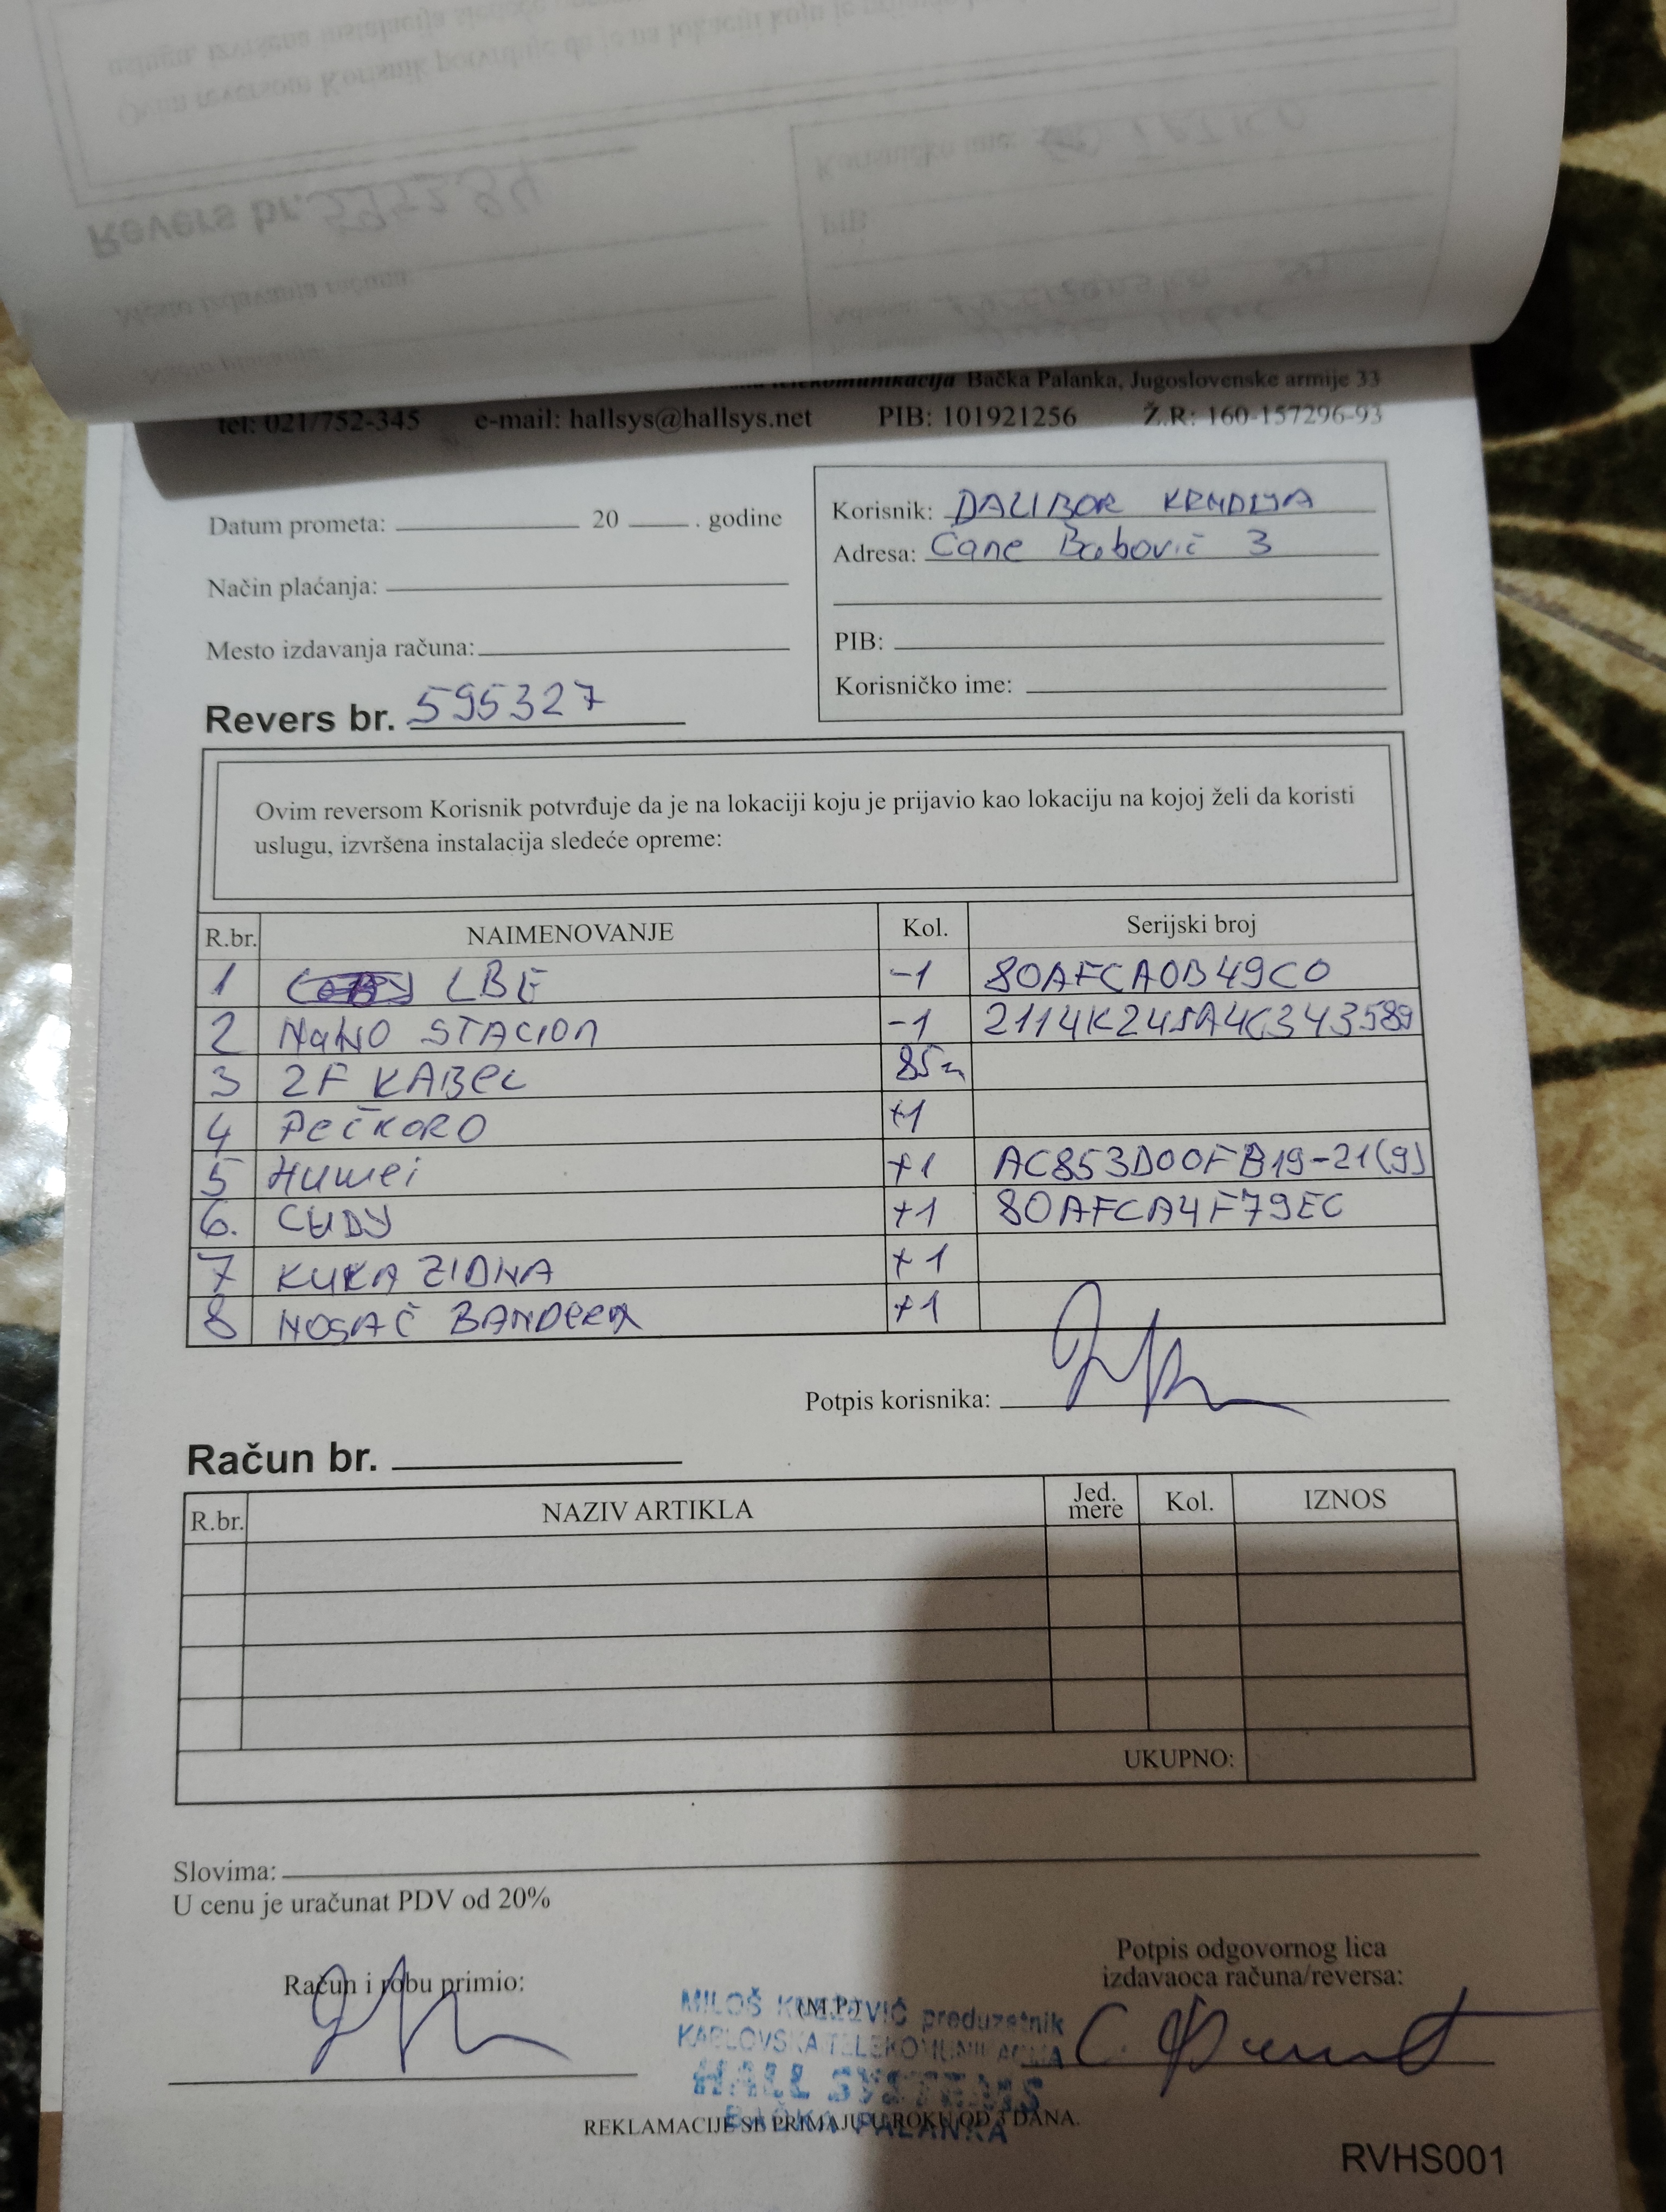 telekomunikacija Bačka Palanka, Jugoslovenske armije 33
tel: 021/752-345 e-mail: hallsys@hallsys.net PIB: 101921256 Ž.R: 160-157296-93
Datum prometa: 20 . godine
Način plaćanja:
Mesto izdavanja računa:
Revers br. 595327
Korisnik: DALIBOR KRNDIJA
Adresa: Cane Babović 3
PIB:
Korisničko ime:
Ovim reversom Korisnik potvrđuje da je na lokaciji koju je prijavio kao lokaciju na kojoj želi da koristi
uslugu, izvršena instalacija sledeće opreme:
R.br. NAIMENOVANJE Kol. Serijski broj
1 LBE -1 80AFCA0B49C0
2 NaNO STACION -1 2114K24SA4C343589
3 2F KABeL 85m
4 PeČKORO +1
5 Huwei +1 AC853D00FB19-21(9)
6. CUDY +1 80AFCA4F79EC
7 KUKA ZIDNA +1
8 NOSAČ BANDERA +1
Potpis korisnika:
Račun br.
R.br. NAZIV ARTIKLA Jed. mere Kol. IZNOS
UKUPNO:
Slovima:
U cenu je uračunat PDV od 20%
Račun i robu primio:
(M.P.)
Potpis odgovornog lica
izdavaoca računa/reversa:
MILOŠ preduzetnik
KARLOVSKA TELEKOMUNIKACIJA
HALL SYSTEMS
BAČKA PALANKA
REKLAMACIJE SE PRIMAJU U ROKU OD 3 DANA.
RVHS001